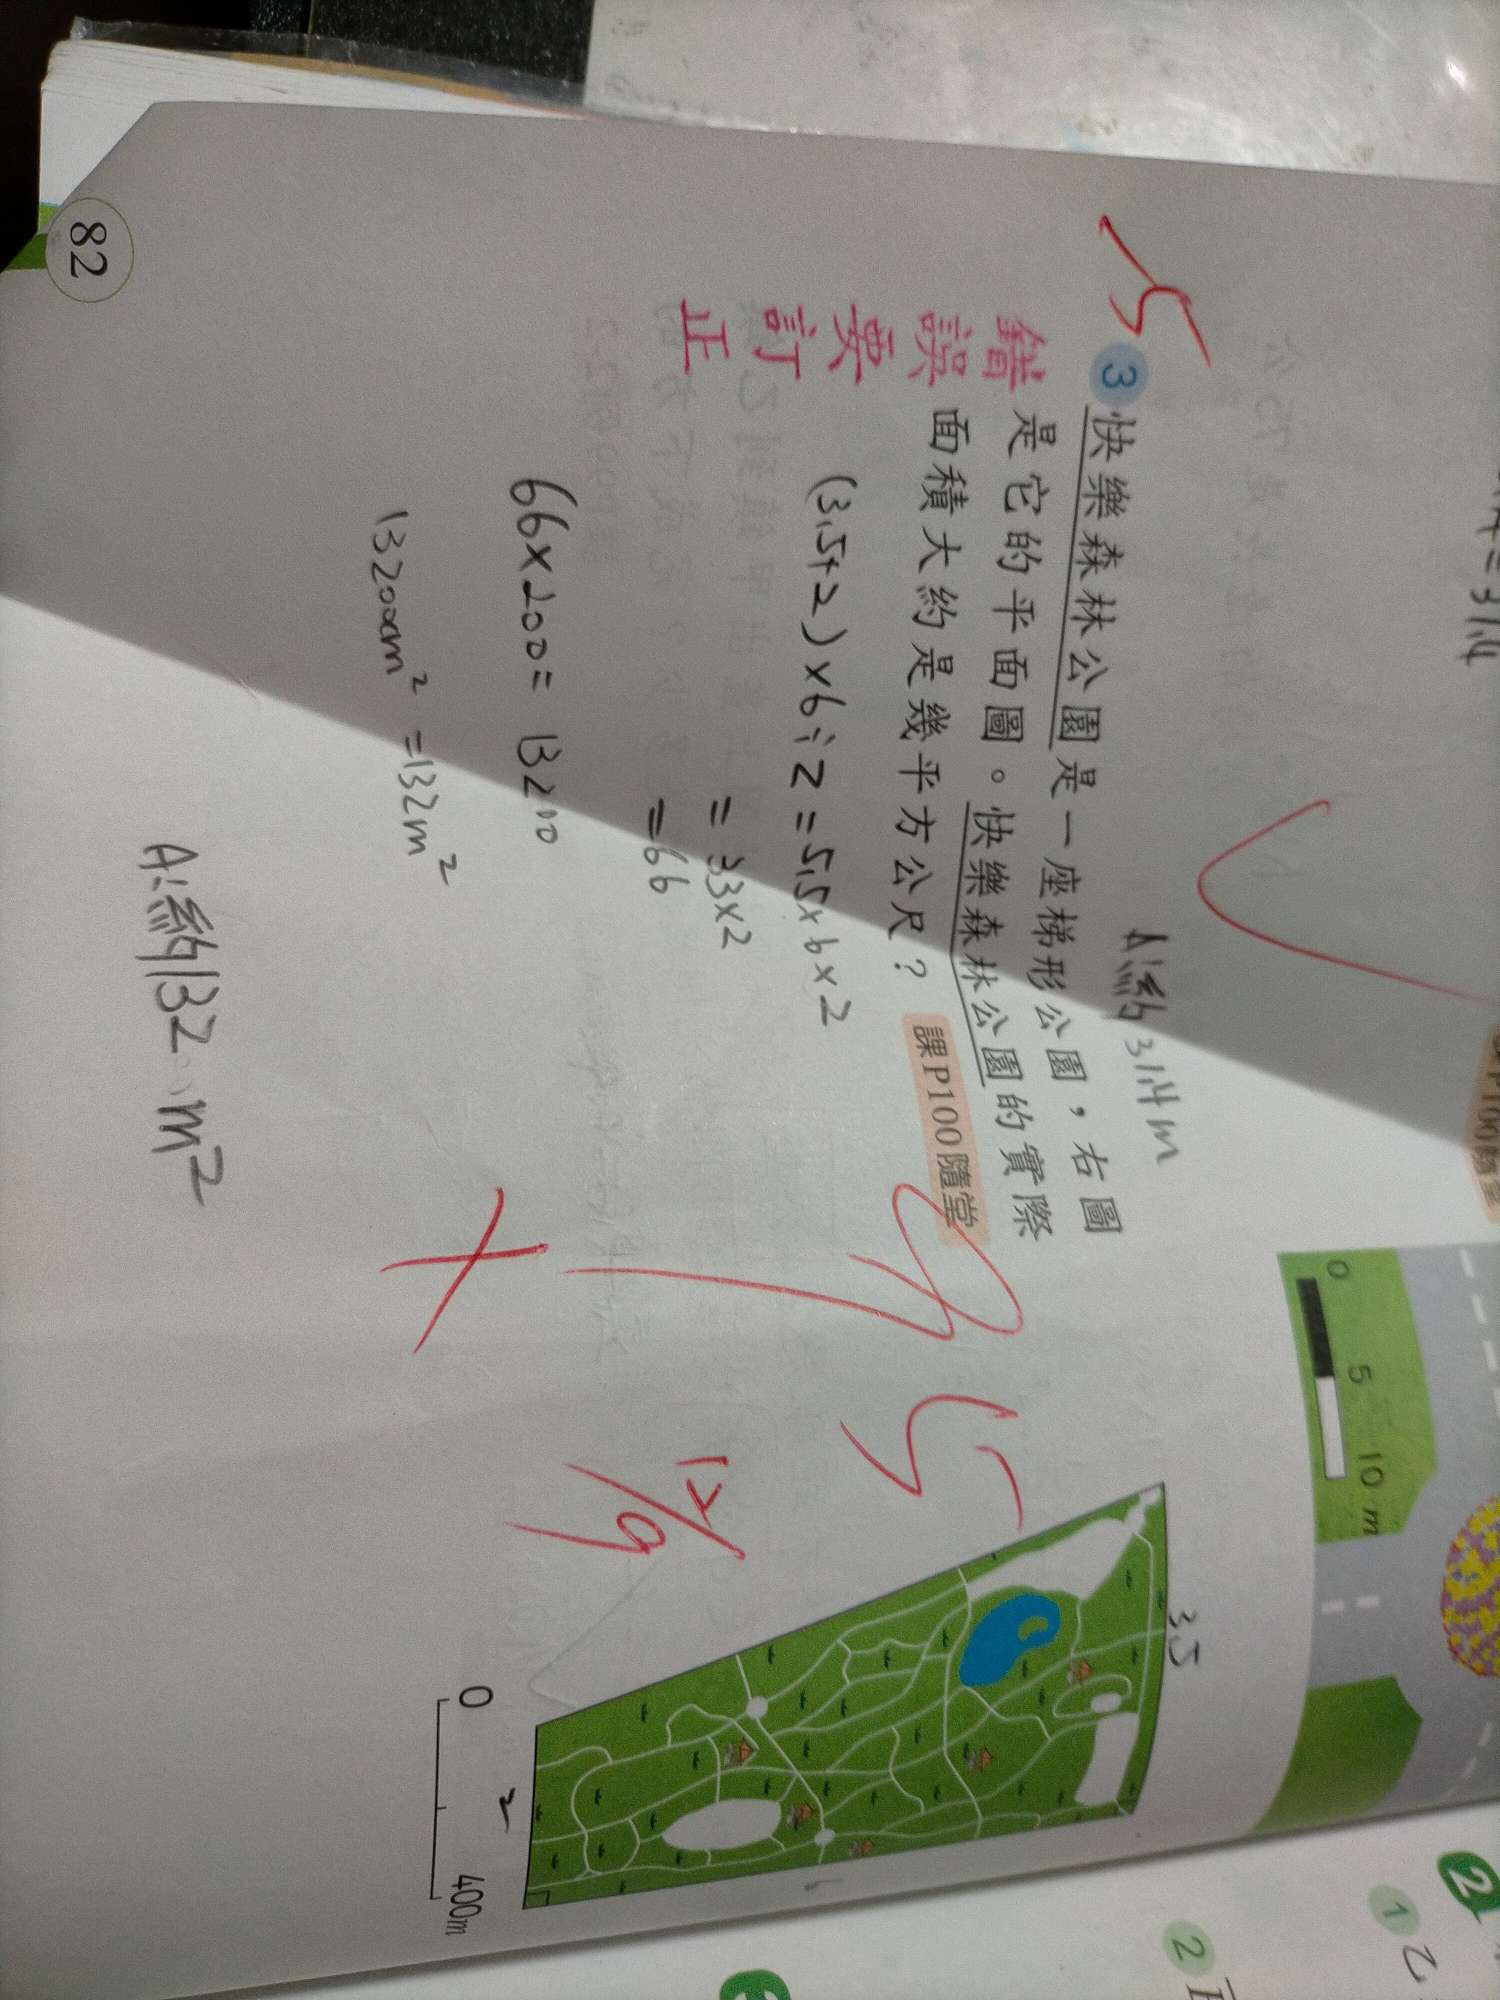 A:約31.4m
0 5 10 m
3 快樂森林公園是一座梯形公園，右圖
是它的平面圖。快樂森林公園的實際
面積大約是幾平方公尺？ 課P100隨堂
錯誤要訂正
(3.5+2)×6÷2=5.5×6×2
=33×2
=66
66×200=13200
13200cm²=132m²
A:約132m²
3.5
2
0 400m
12/9
82
2
1 乙
2